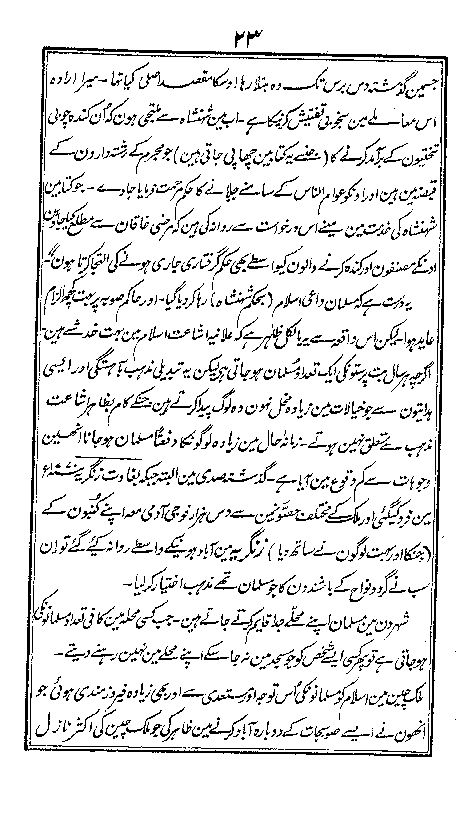 ٢٣
جسمین گذشتہ دس برس تک وہ مبتلا رہا اوسکا مقصد اصلی کیا تھا - میرا ارادہ
اس معاملے مین بخوبی تفتیش کرنیکا ہے - اب مین شہنشاہ سے ملتجی ہون کہ اُن کندہ چوبی
تختیون کے برآمد کرنے کا (جنسے یہ کتابین چھاپی جاتی ہین) جو مجرم کے رشتہ دارون کے
قبضہ مین ہین اور اونکو عوام الناس کے سامنے جلانے کا حکم مرحمت فرمایا جاوے - جو کتابین
شہنشاہ کی خدمت مین مینے اس درخواست سے روانہ کی ہین کہ مرضی خاقان سے مطلع کیا جاؤن
اونکے مصنفون اور کندہ کرنے والون کیواسطے بھی حکم گرفتاری جاری ہونے کی التجا کرتا ہون"
یہ درست ہے کہ مسلمان داعی اسلام (بحکم شہنشاہ) رہا کر دیا گیا - اور حاکم صوبہ پر بہت کچھ الزام
عاید ہوا لیکن اس واقعہ سے یہ بالکل ظاہر ہے کہ علانیہ اشاعت اسلام مین بہت خدشے ہین -
اگرچہ ہر سال بت پرستونکی ایک تعداد مسلمان ہو جاتی ہے لیکن یہ تبدیلی مذہب بآہستگی اور ایسی
ہدایتون سے جو خیالات مین زیادہ مخل نہون وہ لوگ پیدا کرتے ہین جنکے کام بظاہر اشاعت
مذہب سے متعلق نہین ہوتے - زمانہ حال مین زیادہ لوگونکا دفعتاً مسلمان ہو جانا انھین
وجوہات سے کم وقوع مین آیا ہے - گذشتہ صدی مین البتہ جبکہ بغاوت زنگریہ
مین فرو کیگئی اور ملک کے مختلف حصون مین سے دس ہزار فوجی آدمی معہ اپنے کنبون کے
(جنکا اور بہت لوگون نے ساتھ دیا) زنگریہ مین آباد ہونیکے واسطے روانہ کیے گئے تو ان
سب نے گرد و نواح کے باشندون کا جو مسلمان تھے مذہب اختیار کر لیا -
شہرون مین مسلمان اپنے محلے جدا قایم کرتے جاتے ہین - جب کسی محلہ مین کافی تعداد مسلمانونکی
ہو جاتی ہے تو پھر کسی ایسے شخص کو جو مسجد مین نہ جا سکے اپنے محلے مین نہین رہنے دیتے -
ملک چین مین اسلام کو مسلمانونکی اُس توجہ اور مستعدی سے اور بھی زیادہ فیروزمندی ہوئی جو
انھون نے ایسے صوبجات کے دوبارہ آباد کرنے مین ظاہر کی جو ملک چین کی اکثر نازل